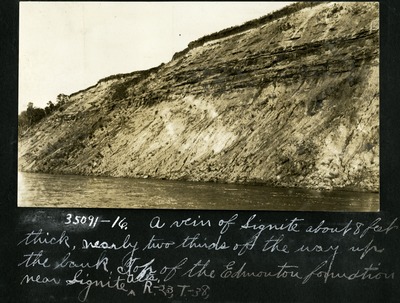 35091-16. A vein of Lignite about 8 feet
thick, nearly two thirds of the way up
the bank, Top of the Edmonton formation
near Lignite, Alta. R-23, T-58,